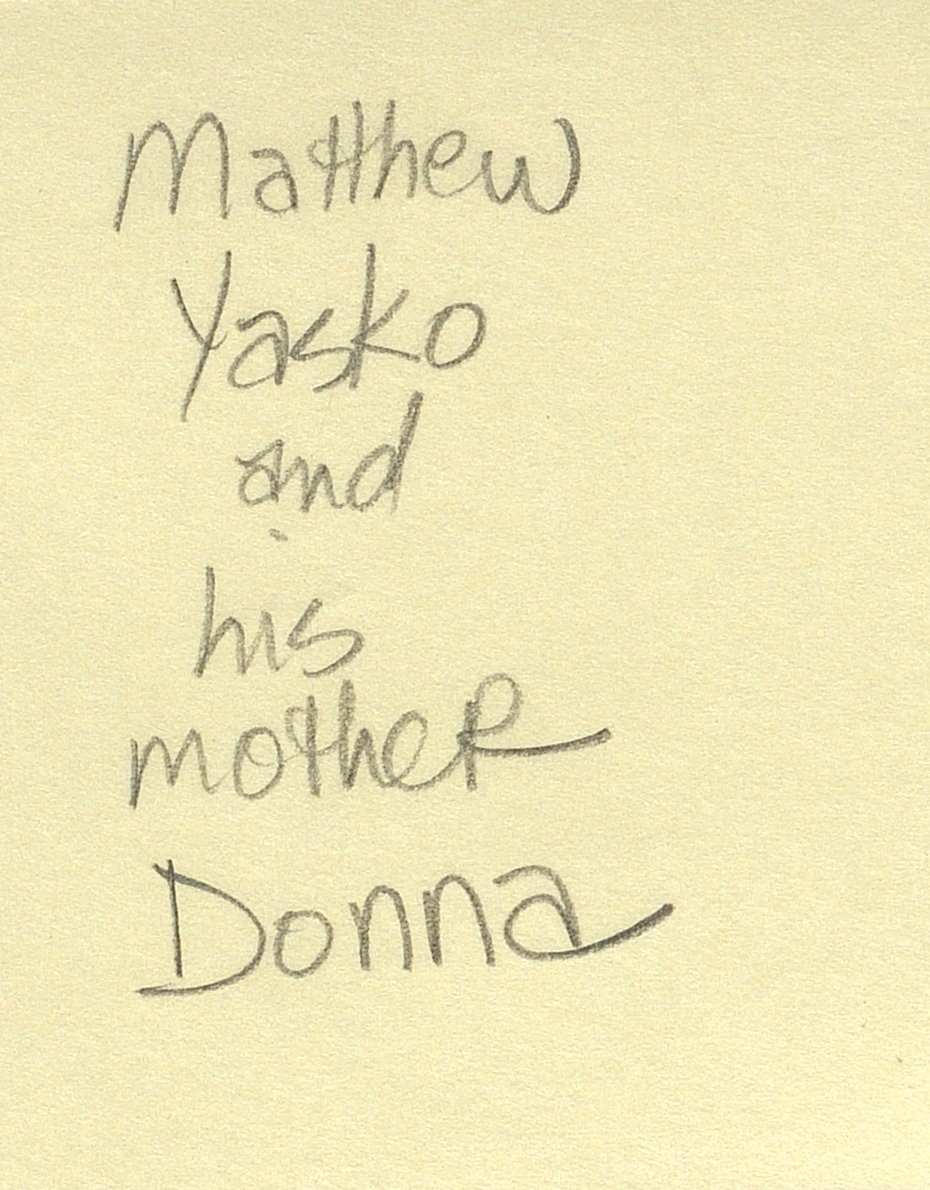 Matthew
Yasko
and
his
mother
Donna